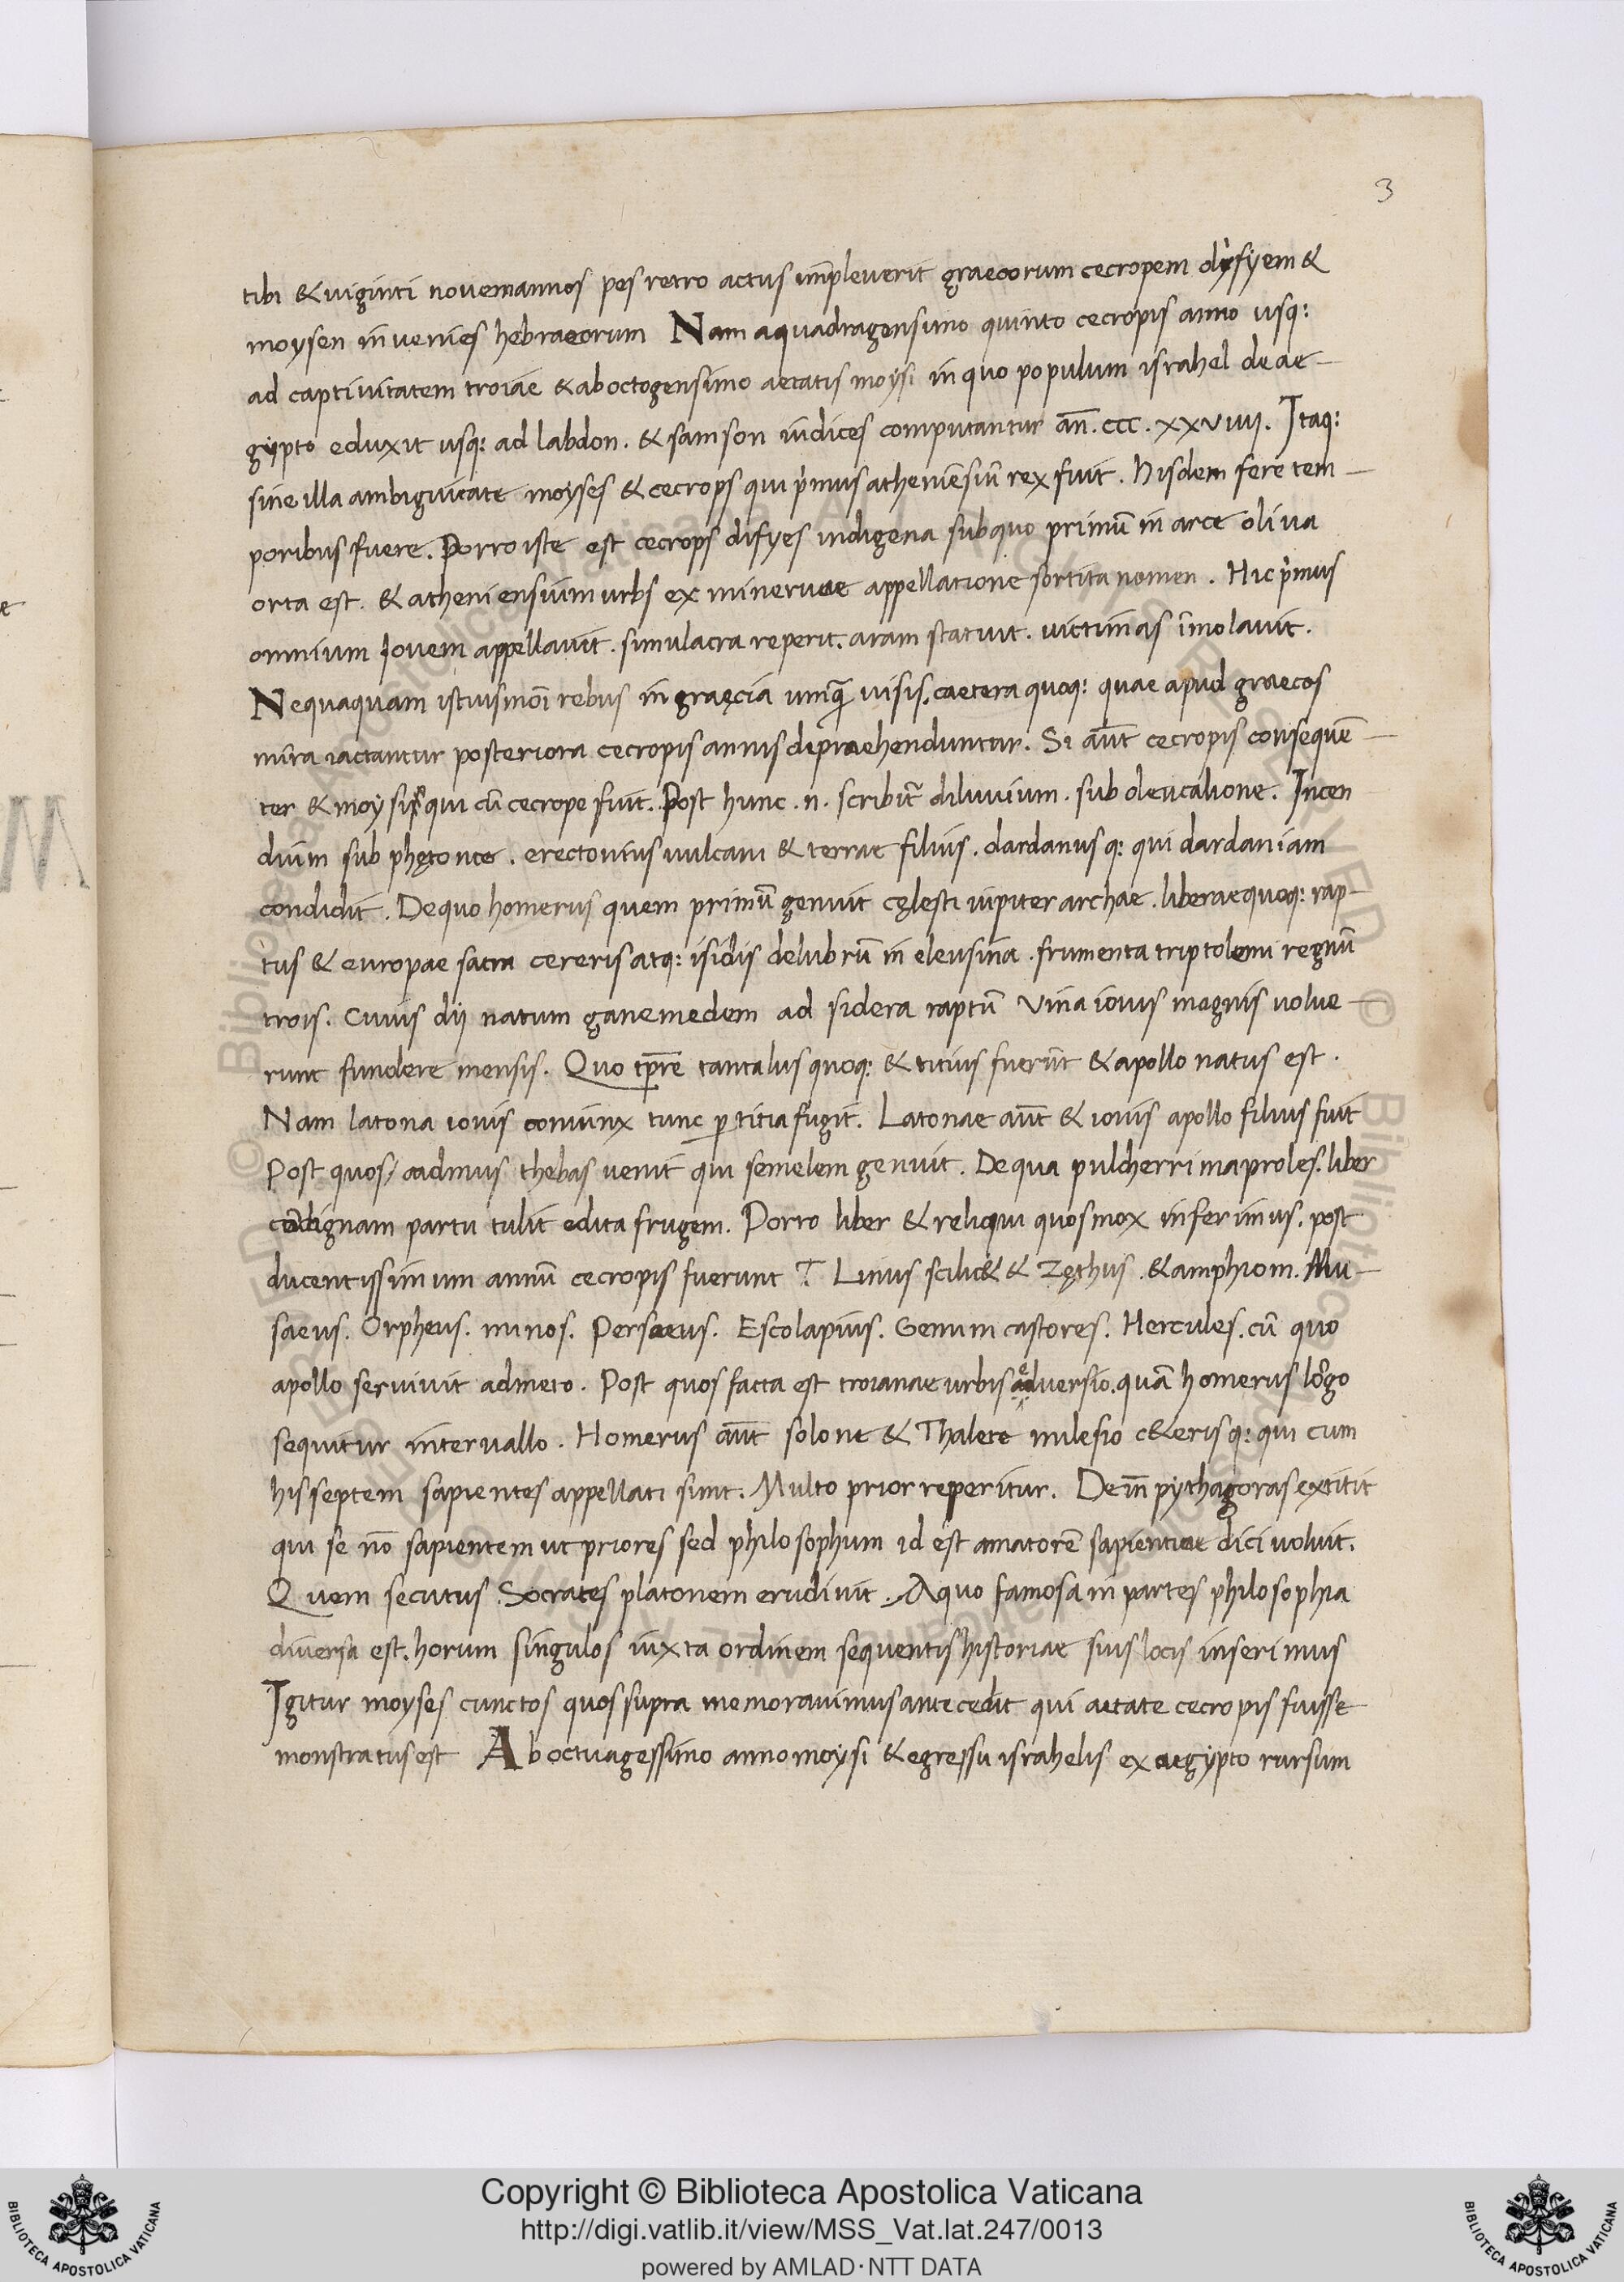 3
tibi & uiginti nouemannos pes retro actus impleuerit graecorum cecropem difyem &
moysen inuenies hebraeorum Nam aquadragensimo quinto cecropis anno usq:
ad captiuitatem troiae & aboctogensimo aetatis moysi in quo populum israhel de ae-
gypto eduxit usq: ad labdon. & samson iudices computantur añ. ccc. xxviiij. Itaq:
sine illa ambiguitate moyses & cecrops qui p'mus atheniēsiū rex fuit. hisdem fere tem-
poribus fuere. Porro iste est cecrops difyes indigena subquo primū in arce oliua
orta est. & atheniensium urbs ex mineruae appellatione sortita nomen. Hic p'mus
omnium Iouem appellauit. simulacra reperit. aram statuit. uictimas īmolauit.
Nequaquam istiusmōi rebus in graęcia umquā uisis. caetera quoq: quae apud graecos
mira iactantur posteriora cecropis annis dipraehenduntur. Si aūt cecropis consequē-
ter & moysi qui cū cecrope fuit. Post hunc .n. scribit̄ diluuium. sub deucalione. Incen
dium sub phętonte. erectonius uulcani & terrae filius. dardanus q: qui dardaniam
condidit. Dequo homerus quem primū genuit cęlesti iupiter archae. liberaequoq: rap-
tus & europae sacra cereris atq: isidis delubrū in eleusina. frumenta triptolemi regnū
trois. Cuius dij natum ganemedem ad sidera raptū Vina iouis magnis uolue-
runt fundere mensis. Quo tp̄re tantalus quoq: & titius fuerūt & apollo natus est.
Nam latona iouis coniunx tunc p titia fugit. Latonae aūt & iouis apollo filius fuit
Post quos/ cadmus thebas uenit qui semelem genuit. Dequa pulcherrima proles. liber
cōdignam partu tulit edita frugem. Porro liber & reliqui quos mox inferimus. post
ducentissimum annū cecropis fuerunt T Linus scilic& & Zęthus. & amphiom. Mu-
saeus. Orpheus. minos. Persaeus. Escolapius. Gemini castores. Hercules. cū quo
apollo seruiuit admeto. Post quos facta est troianae urbis aduersio. quā homerus lōgo
sequitur interuallo. Homerus aūt solone & Thalete milesio c&erisq: qui cum
his septem sapientes appellati sunt. Multo prior reperitur. Dein̄ pythagoras extitit
qui se nō sapientem ut priores sed philosophum id est amatorē sapientiae dici uoluit.
Quem secutus. Socrates platonem erudiuit. Aquo famosa in partes philosophia
diuersa est. horum singulos iuxta ordinem sequentis historiae suis locis inserimus
Igitur moyses cunctos quos supra memorauimus antecedit qui aetate cecropis fuisse
monstratus est Aboctuagessimo anno moysi & egressu israhelis ex aegypto rursum
Copyright © Biblioteca Apostolica Vaticana
http://digi.vatlib.it/view/MSS_Vat.lat.247/0013
powered by AMLAD·NTT DATA
BIBLIOTECA APOSTOLICA VATICANA
BIBLIOTECA APOSTOLICA VATICANA